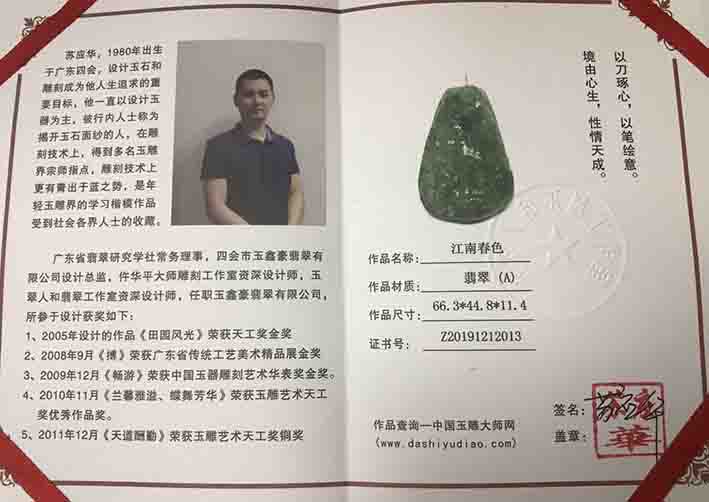 苏应华，1980年出生
于广东四会，设计玉石和
雕刻成为他人生追求的重
要目标，他一直以设计玉
器为主，被行内人士称为
揭开玉石面纱的人，在雕
刻技术上，得到多名玉雕
界宗师指点，雕刻技术上
更有青出于蓝之势，是年
轻玉雕界的学习楷模作品
受到社会各界人士的收藏。
广东省翡翠研究学社常务理事，四会市玉鑫豪翡翠有
限公司设计总监，仵华平大师雕刻工作室资深设计师，玉
翠人和翡翠工作室资深设计师，任职玉鑫豪翡翠有限公司，
所参于设计获奖如下：
1、2005年设计的作品《田园风光》荣获天工奖金奖
2、2008年9月《搏》荣获广东省传统工艺美术精品展金奖
3、2009年12月《畅游》荣获中国玉器雕刻艺术华表奖金奖。
4、2010年11月《兰馨雅溢、蝶舞芳华》荣获玉雕艺术天工
奖优秀作品奖。
5、2011年12月《天道酬勤》荣获玉雕艺术天工奖铜奖
以刀琢心，以笔绘意。
境由心生，性情天成。
作品名称：江南春色
作品材质：翡翠（A）
作品尺寸：66.3*44.8*11.4
证书号：Z20191212013
作品查询—中国玉雕大师网
(www.dashiyudiao.com)
签名：苏应华
盖章：